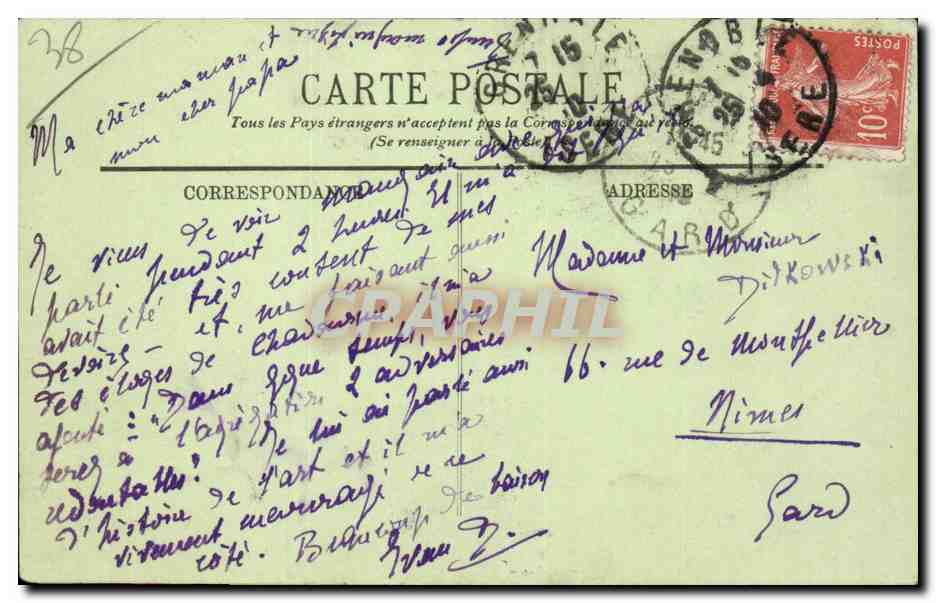 38
Temps magnifique
Ma chère maman et
mon cher papa
CARTE POSTALE
Tous les Pays étrangers n'acceptent pas la Correspondance au recto
(Se renseigner à la Poste)
CORRESPONDANCE
ADRESSE
Je viens de voir avec qui j'ai
parlé pendant 2 heures. Il m'a dit qu'il
avait été très content de mes
devoirs - et, me faisant aussi
des éloges de il m'a
ajouté : "Dans qque temps, vous
serez à l'agrégation 2 adversaires
redoutables". Je lui ai parlé aussi
d'histoire de l'art et il m'a
vivement encouragé de ce
côté. Beaucoup de baisers
Madame et Monsieur
DitKowski
66. rue de Montpellier
Nîmes
Gard
GRENOBLE
ISERE
GARD
POSTES
10c
CPAPHIL